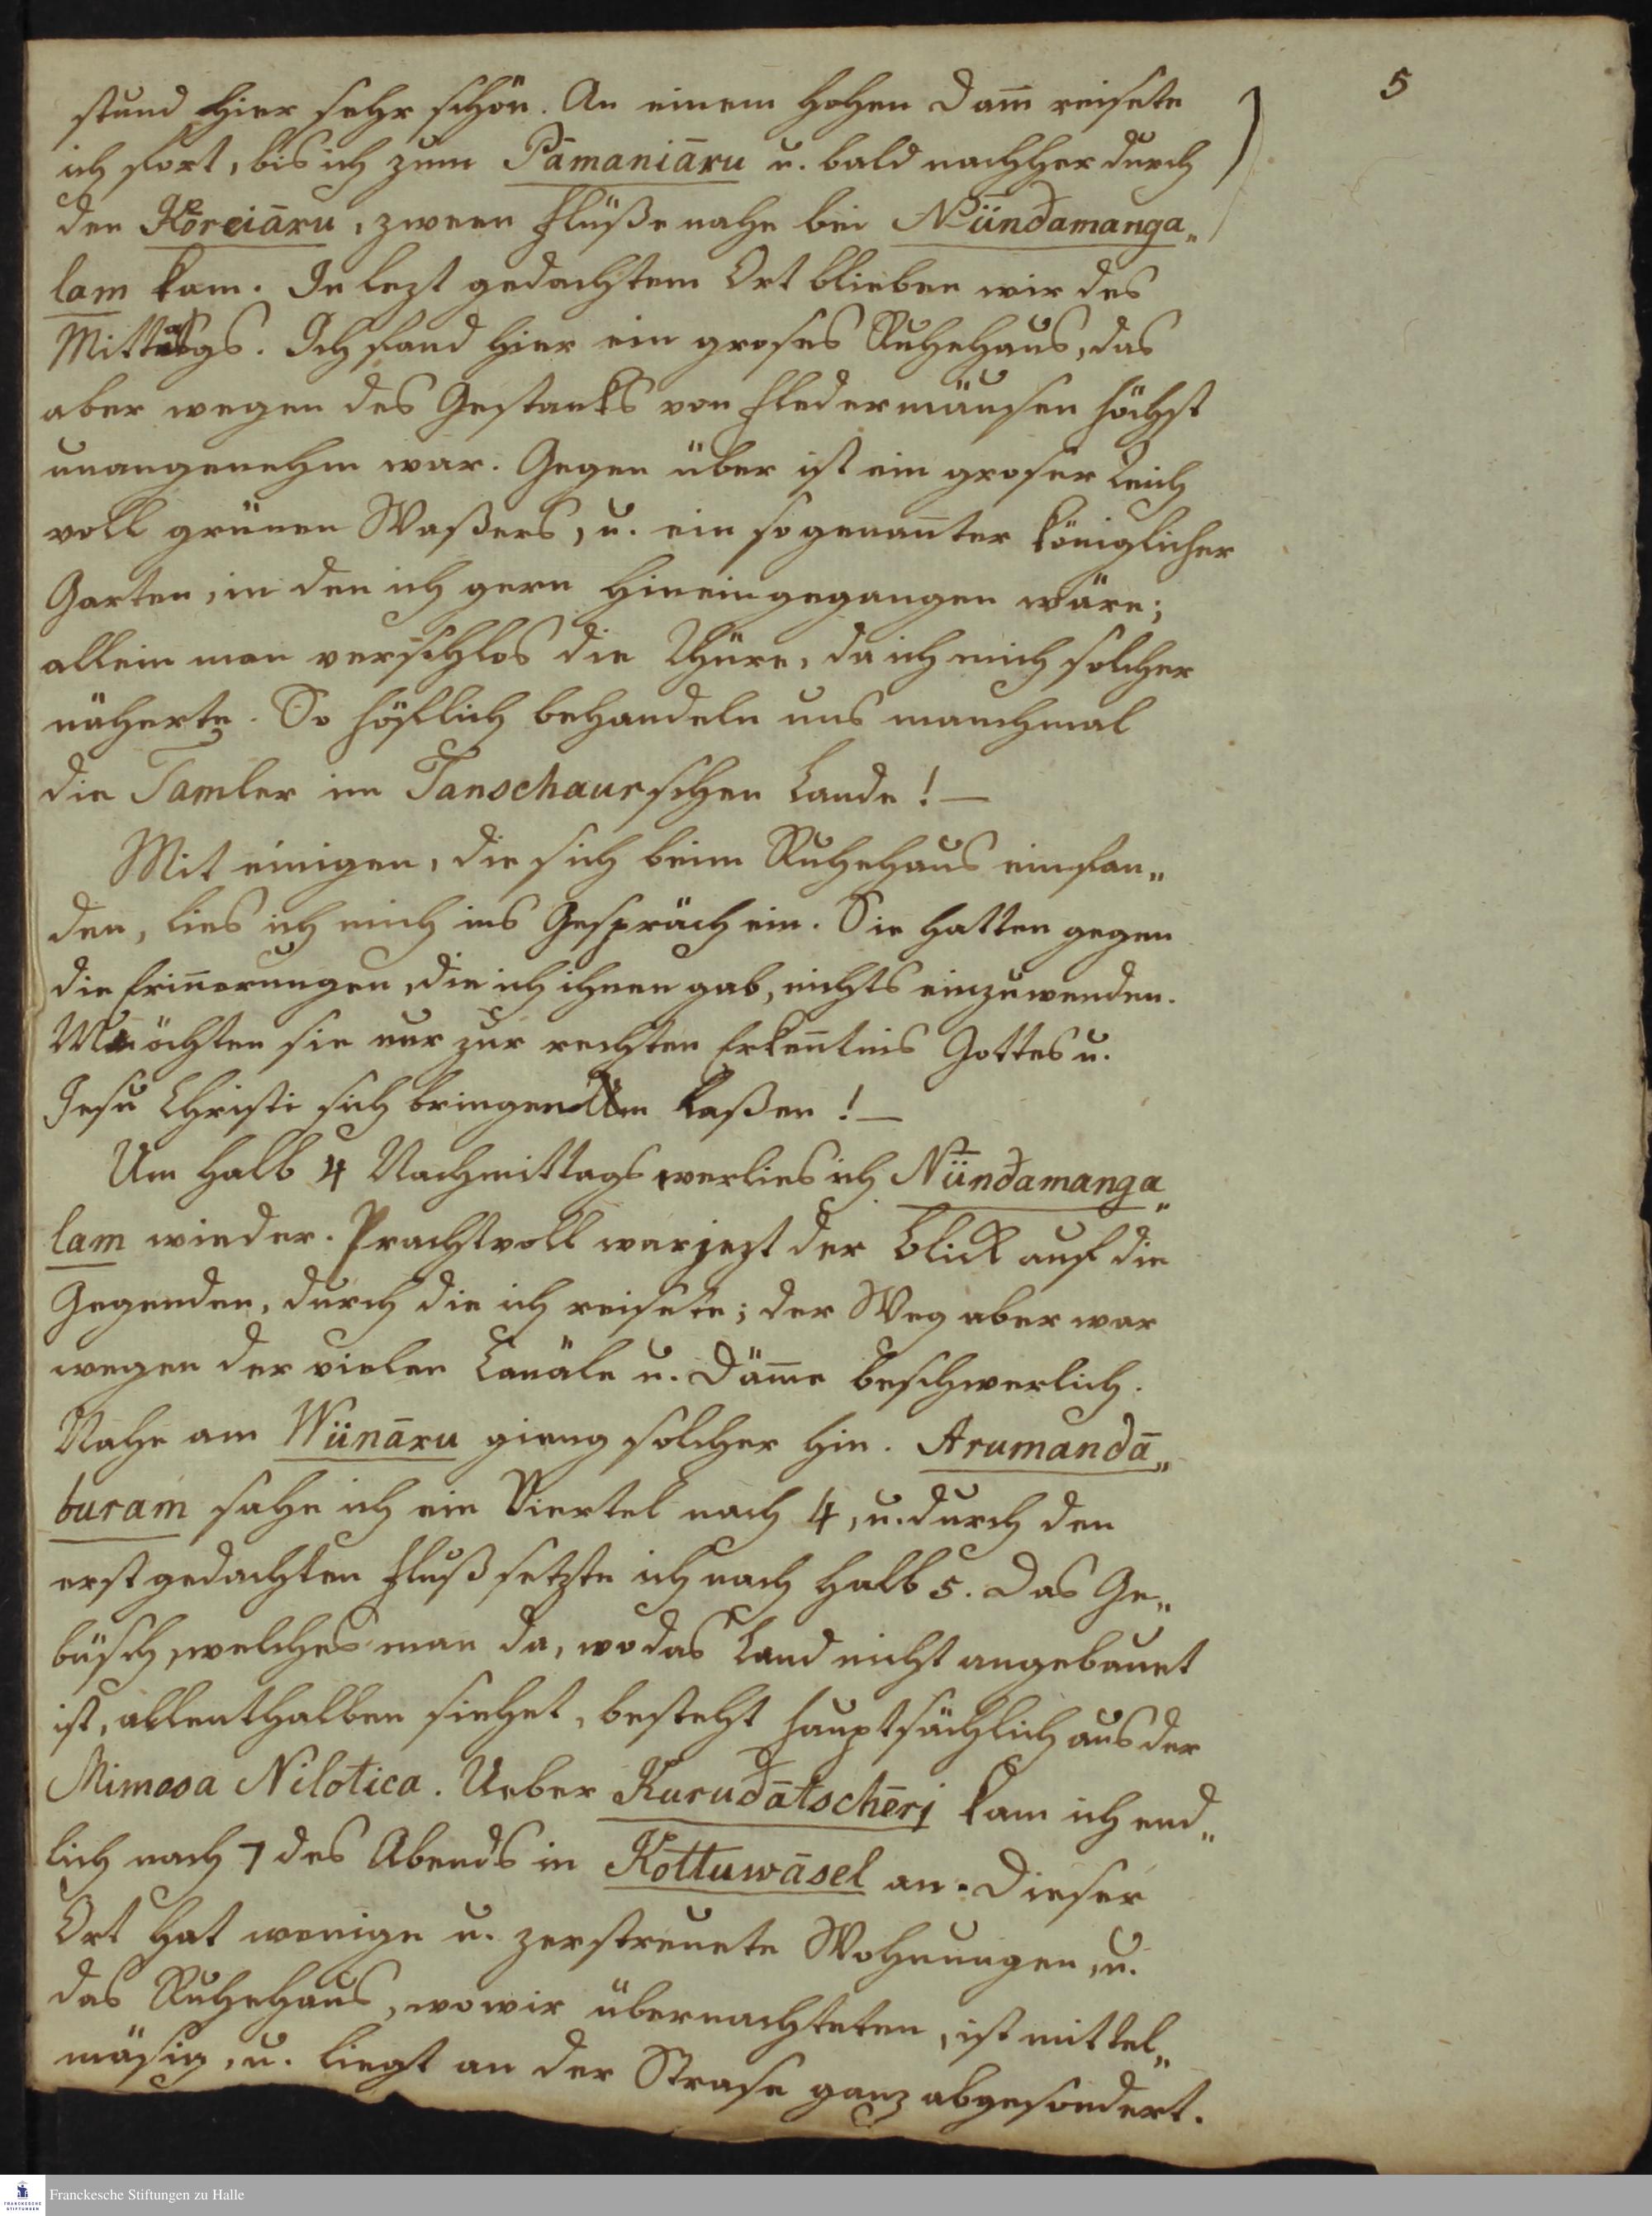 5
stund hier sehr schön. An einem hohen Dam̄ reisete
ich fort, bis ich zum Pāmaniāru u. bald nachher durch
den Kōreiāru, zween Flüße nahe bei Nīindamanga„
lam kam. In lezt gedachtem Ort blieben wir des
Mittags. Ich fand hier ein groses Ruhehaus, das
aber wegen des Gestanks von Fledermäusen höchst
unangenehm war. Gegen über ist ein groser Teich
voll grünen Waßers, u. ein sogenan̄ter königlicher
Garten, in den ich gern hineingegangen wäre;
allein man verschlos die Thüre, da ich mich solcher
näherte. So höflich behandeln uns manchmal
die Tamler im Tanschaurschen Lande! —
Mit einigen, die sich beim Ruhehaus einfan„
den, lies ich mich ins Gespräch ein. Sie hatten gegen
die Erin̄erungen, die ich ihnen gab, nichts einzuwenden.
Möchten sie nur zur rechten Erken̄tnis Gottes u.
Jesu Christi sich bringen laßen! —
Um halb 4 Nachmittags verlies ich Nīindamanga„
lam wieder. Prachtvoll war jezt der Blick auf die
Gegenden, durch die ich reisete; der Weg aber war
wegen der vielen Canäle u. Däm̄e beschwerlich.
Nahe am Wünāru gieng solcher hin. Arumandā„
buram sahe ich ein Viertel nach 4, u. durch den
erst gedachten Fluß setzte ich nach halb 5. Das Ge„
büsch, welches man da, wo das Land nicht angebauet
ist, allenthalben siehet, besteht hauptsächlich aus der
Mimosa Nilotica. Ueber Kurudātschēri kam ich end„
lich nach 7 des Abends in Kottuwāsel an. Dieser
Ort hat wenige u. zerstreuete Wohnungen, u.
das Ruhehaus, wo wir übernachteten, ist mittel„
mäsig, u. liegt an der Strase ganz abgesondert.
FRANCKESCHE
STIFTUNGEN
Franckesche Stiftungen zu Halle